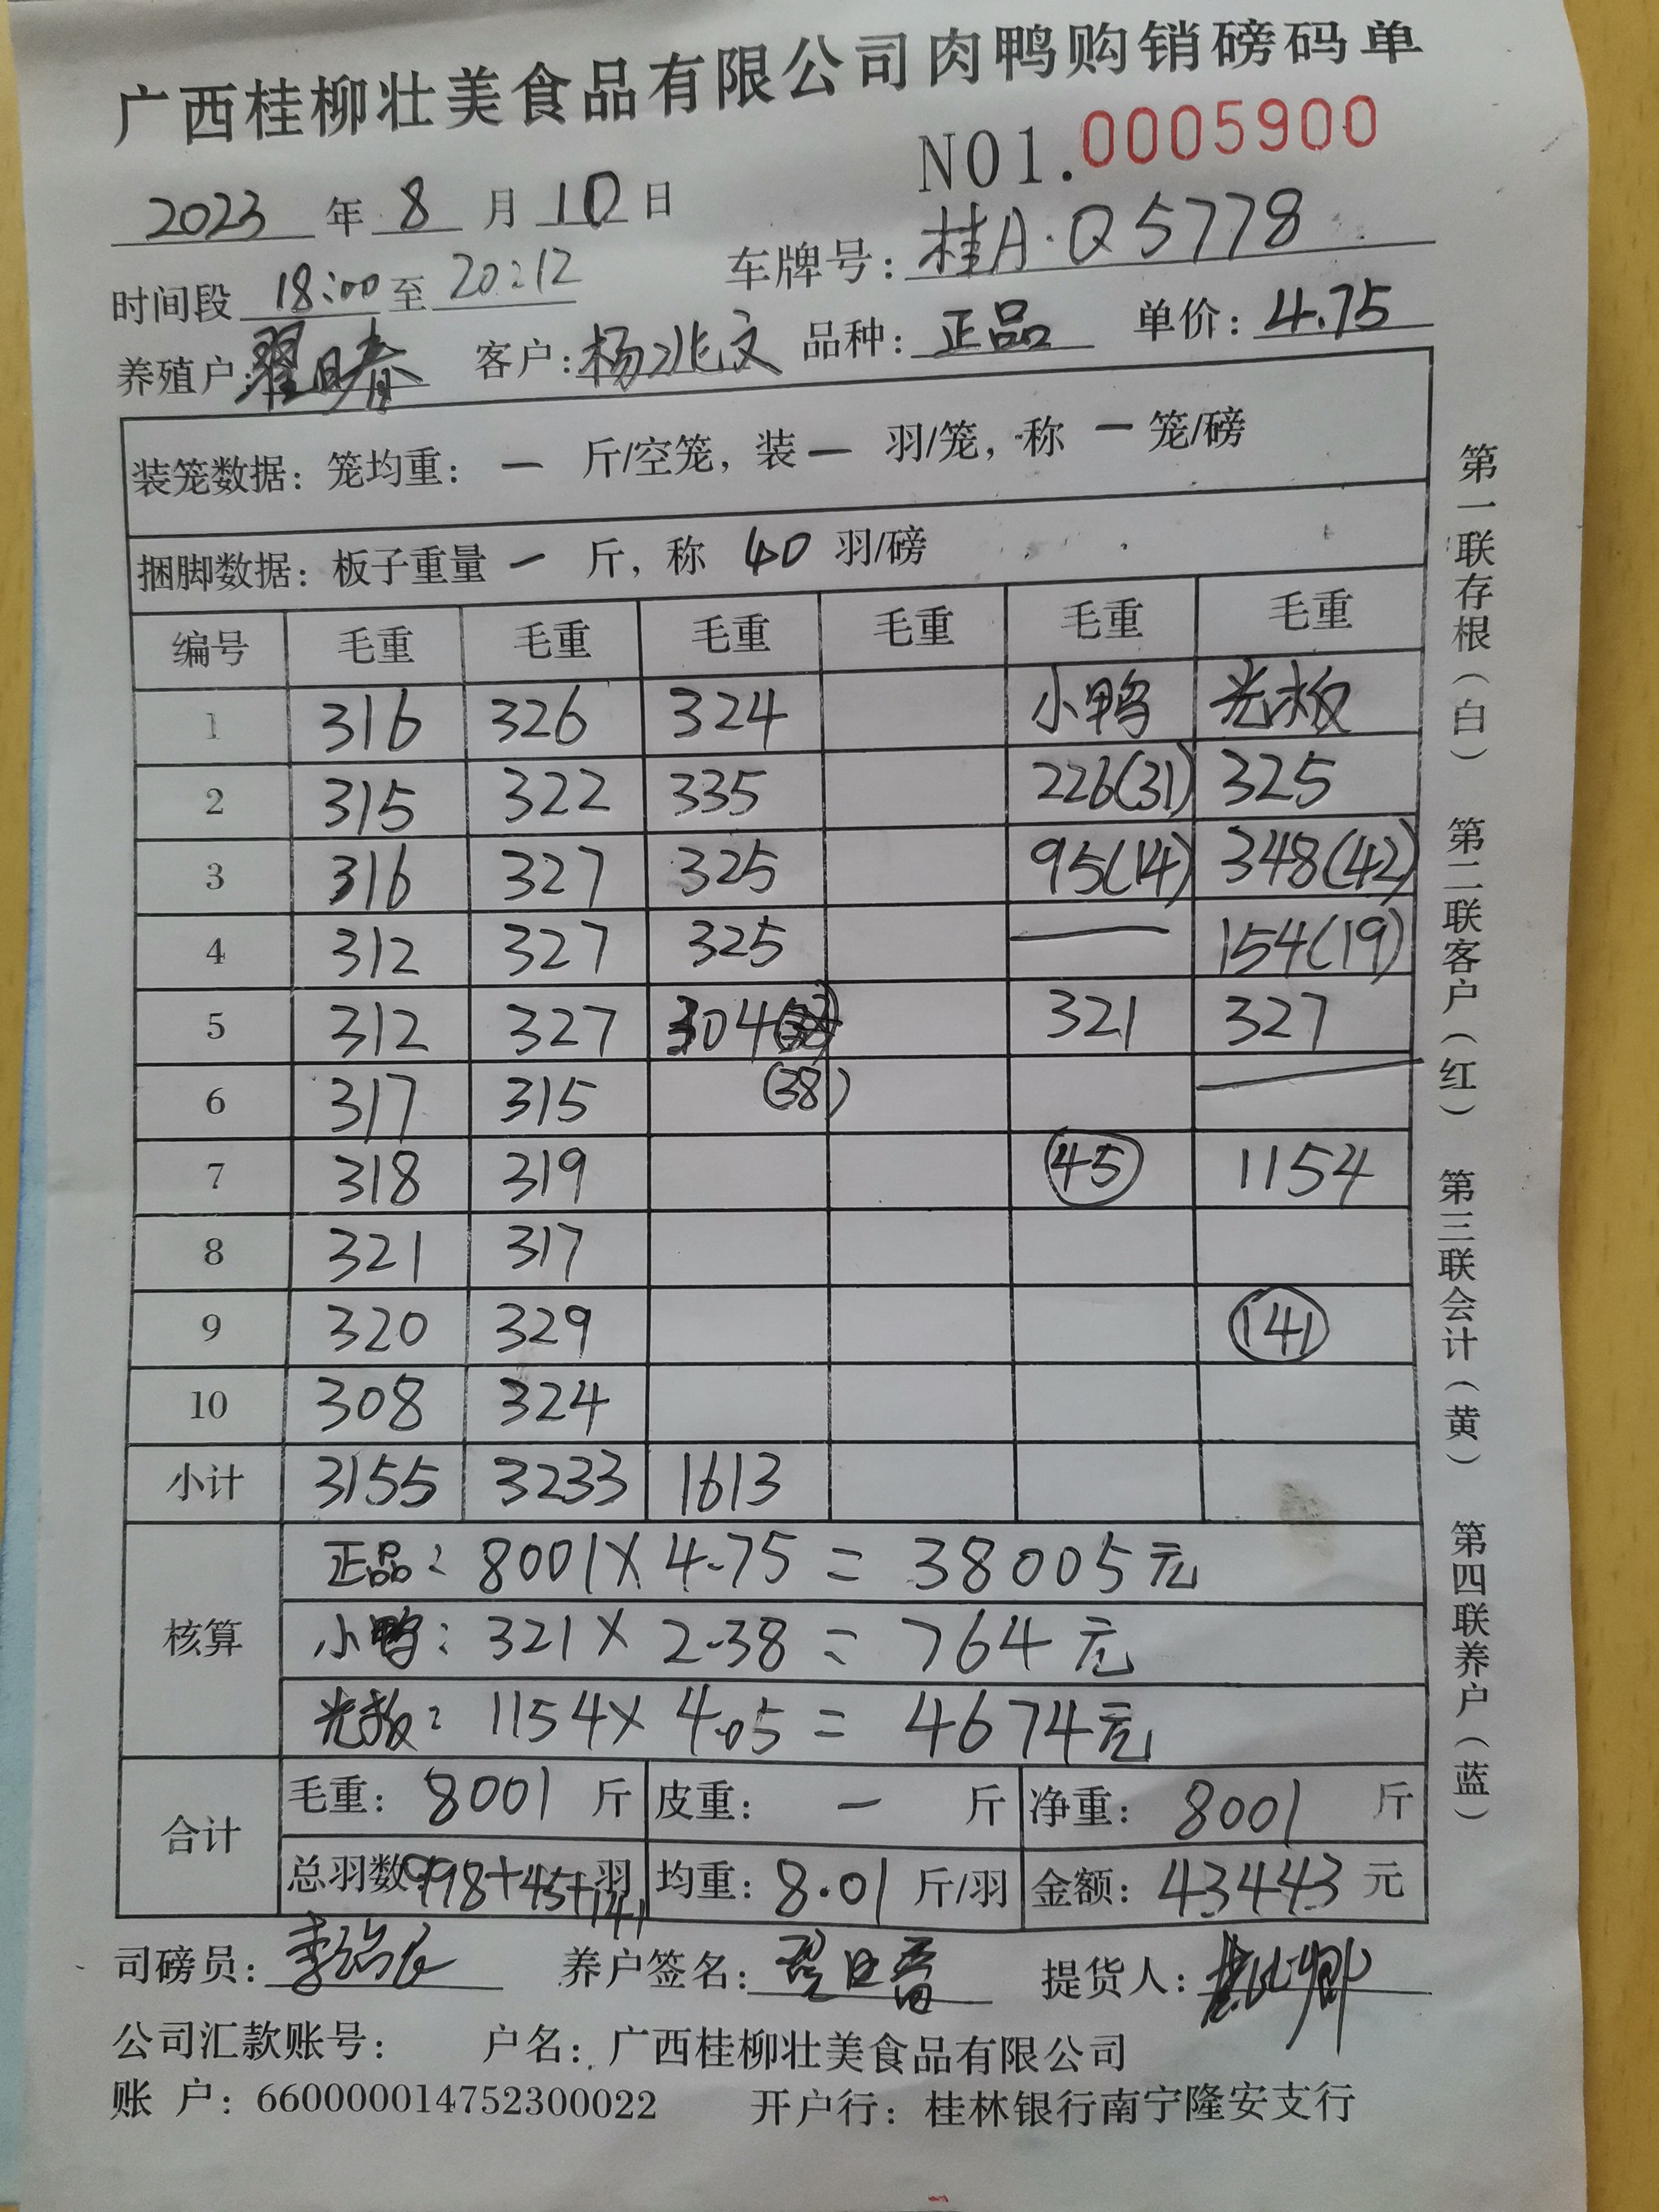 广西桂柳壮美食品有限公司肉鸭购销磅码单
NO1.0005900
2023 年 8 月 10 日
时间段 18:00 至 20:12 车牌号: 桂A·Q5778
养殖户: 翟日春 客户: 杨兆文 品种: 正品 单价: 4.75
装笼数据: 笼均重: — 斤/空笼, 装 — 羽/笼, 称 — 笼/磅
捆脚数据: 板子重量 — 斤, 称 40 羽/磅
编号 毛重 毛重 毛重 毛重 毛重 毛重
1 316 326 324 小鸭 光板
2 315 322 335 226(31) 325
3 316 327 325 95(14) 348(42)
4 312 327 325 — 154(19)
5 312 327 304 321 327
6 317 315 (38) —
7 318 319 45 1154
8 321 317
9 320 329 141
10 308 324
小计 3155 3233 1613
核算
正品: 8001×4.75=38005元
小鸭: 321×2.38=764元
光板: 1154×4.05=4674元
合计
毛重: 8001 斤 皮重: — 斤 净重: 8001 斤
总羽数 998+45+141 羽 均重: 8.01 斤/羽 金额: 43443 元
司磅员: 养户签名: 翟日春 提货人:
公司汇款账号: 户名: 广西桂柳壮美食品有限公司
账 户: 660000014752300022 开户行: 桂林银行南宁隆安支行
第一联存根(白) 第二联客户(红) 第三联会计(黄) 第四联养户(蓝)